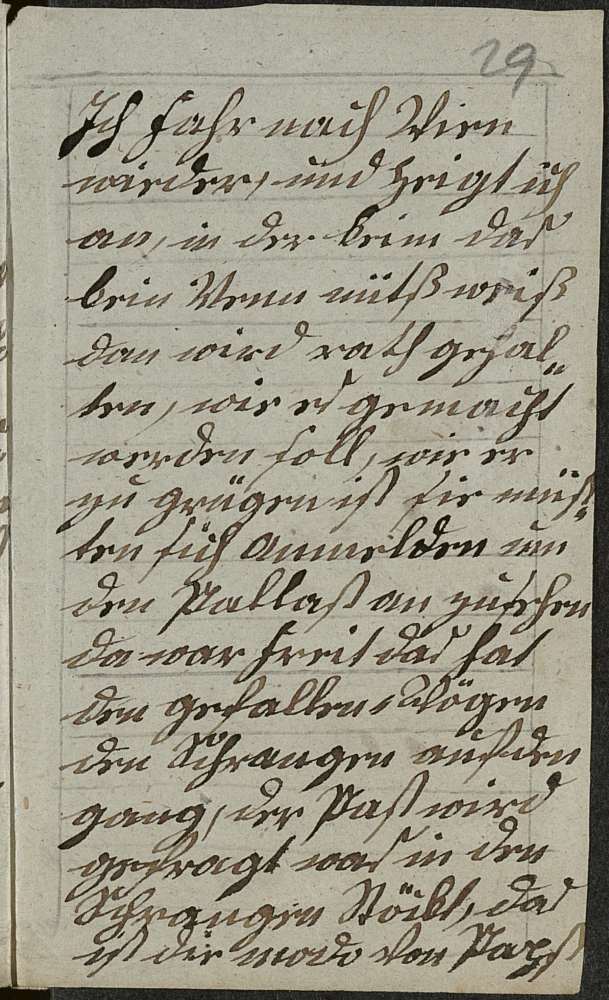 29
Ich fahr nach Wien
wieder, und zeigt ich
an, in der beim das
kein Mann nütß weiß
dan wird rath gehal„
ten, wie es gemacht
werden soll, wie er
zu grügen ist sie müß„
ten sich Anmelden um
den Pallast an zusehen
da war freit das hat
den gefallen Mögen
den Schrangen auf den
gang, der Past wird
gefragt was in den
Schrangen Stöckt, das
ist die modo von Papst